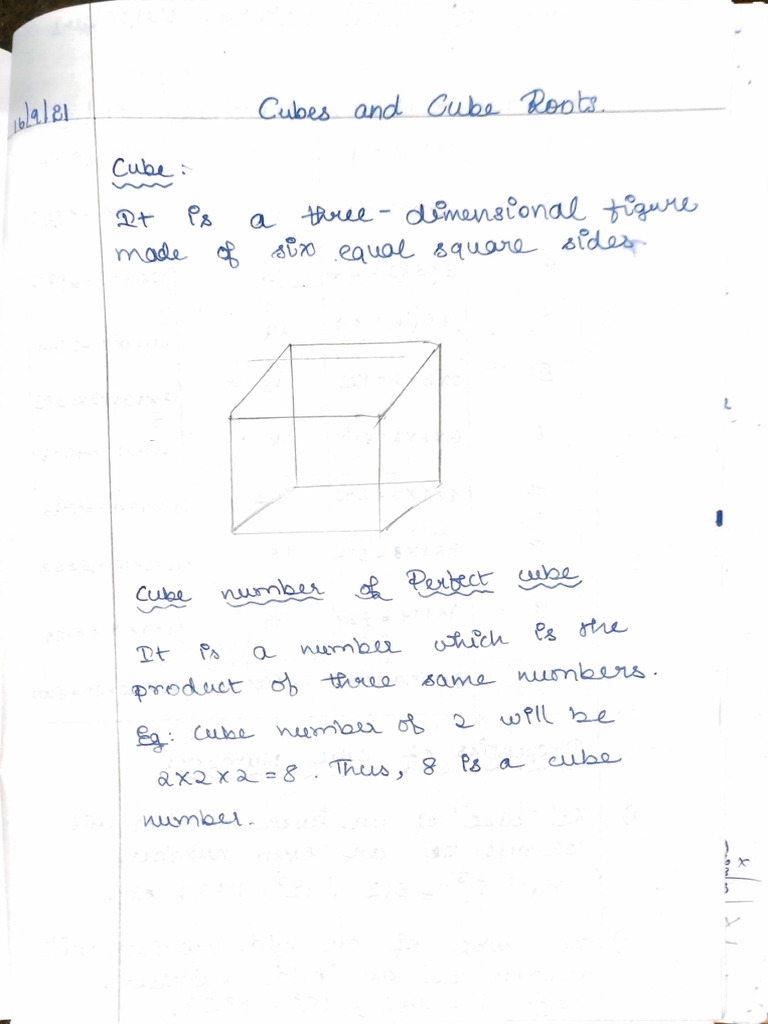 16/9/21
Cubes and Cube Roots.
Cube:
It is a three-dimensional figure
made of six equal square sides
Cube number of Perfect cube
It is a number which is the
product of three same numbers.
Eg: Cube number of 2 will be
2x2x2=8. Thus, 8 is a cube
number.